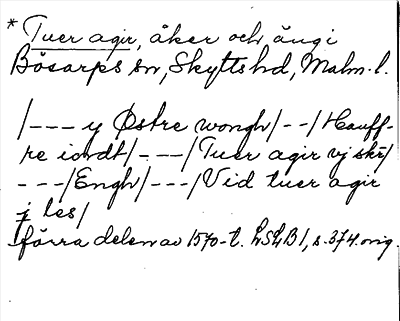 * Tuer agir, åker och äng i
Bösarps sn, Skytts hd, Malm. l.
/--- y Østre wongh/--/Hauff-
re iordt/---/Tuer agir vj skr/
---/Engh/---/Vid tuer agir
j les/
förra delen av 1570-t. LSLB 1, s. 374. orig.